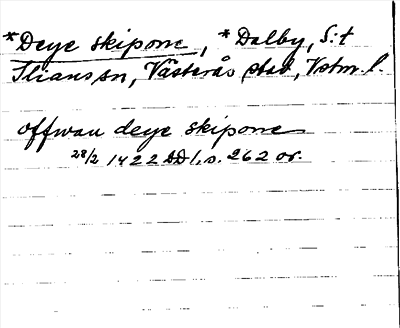 *Deye skipone, *Dalby, S:t
Ilians sn, Västerås stad, Vstm. l.
offwan deye skipone
28/2 1422 DD 1, s. 262 or.